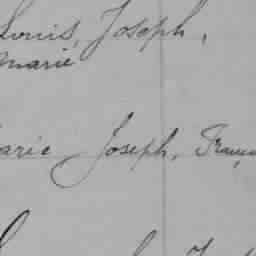 Louis, Joseph,
Marie
arie Joseph, Franç